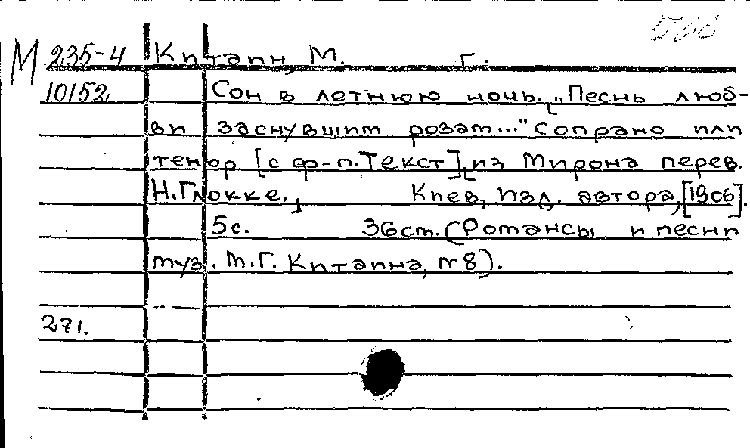 М 235-4 Китаин, М. Г.
10152 Сон в летнюю ночь. „Песнь люб-
ви заснувшим розам..." Сопрано или
тенор [с ф-п. Текст] из Мирона перев.
Н. Глокке. Киев, изд. автора, [19сб].
5с. 36см. (Романсы и песни
муз. М.Г. Китаина, №8).
271.